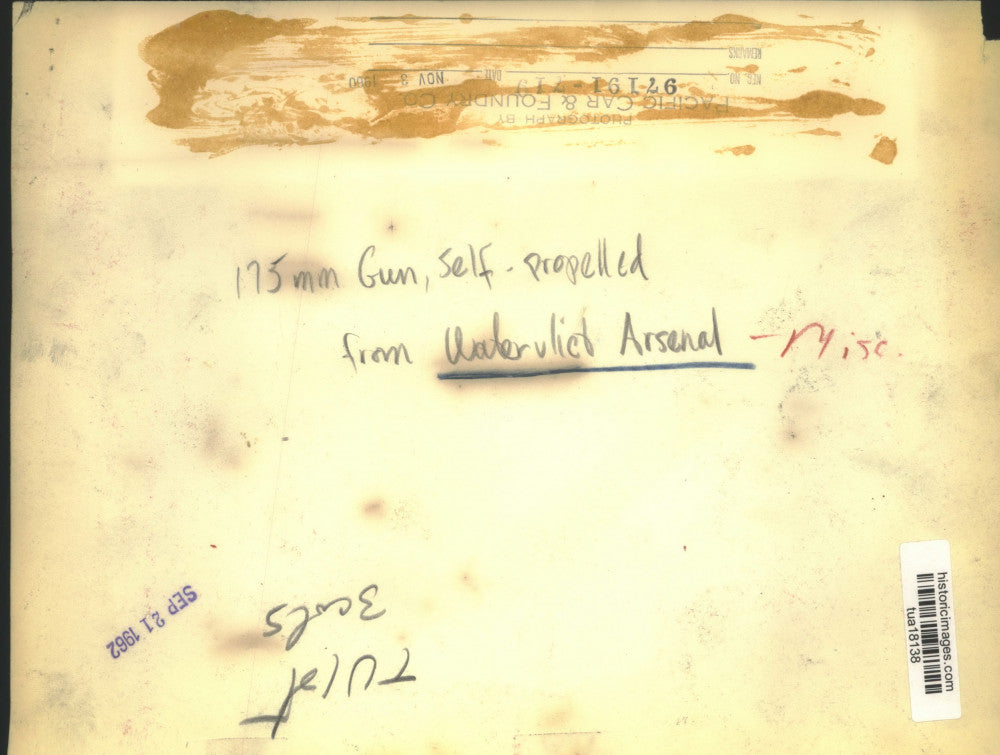 PHOTOGRAPH BY
PACIFIC CAR & FOUNDRY CO.
NEG. NO. 97191-719 DATE NOV 3 1960
REMARKS
175mm Gun, self-propelled
from Watervliet Arsenal - Misc.
SEP 21 1962
3 cols
historicimages.com
tua18138